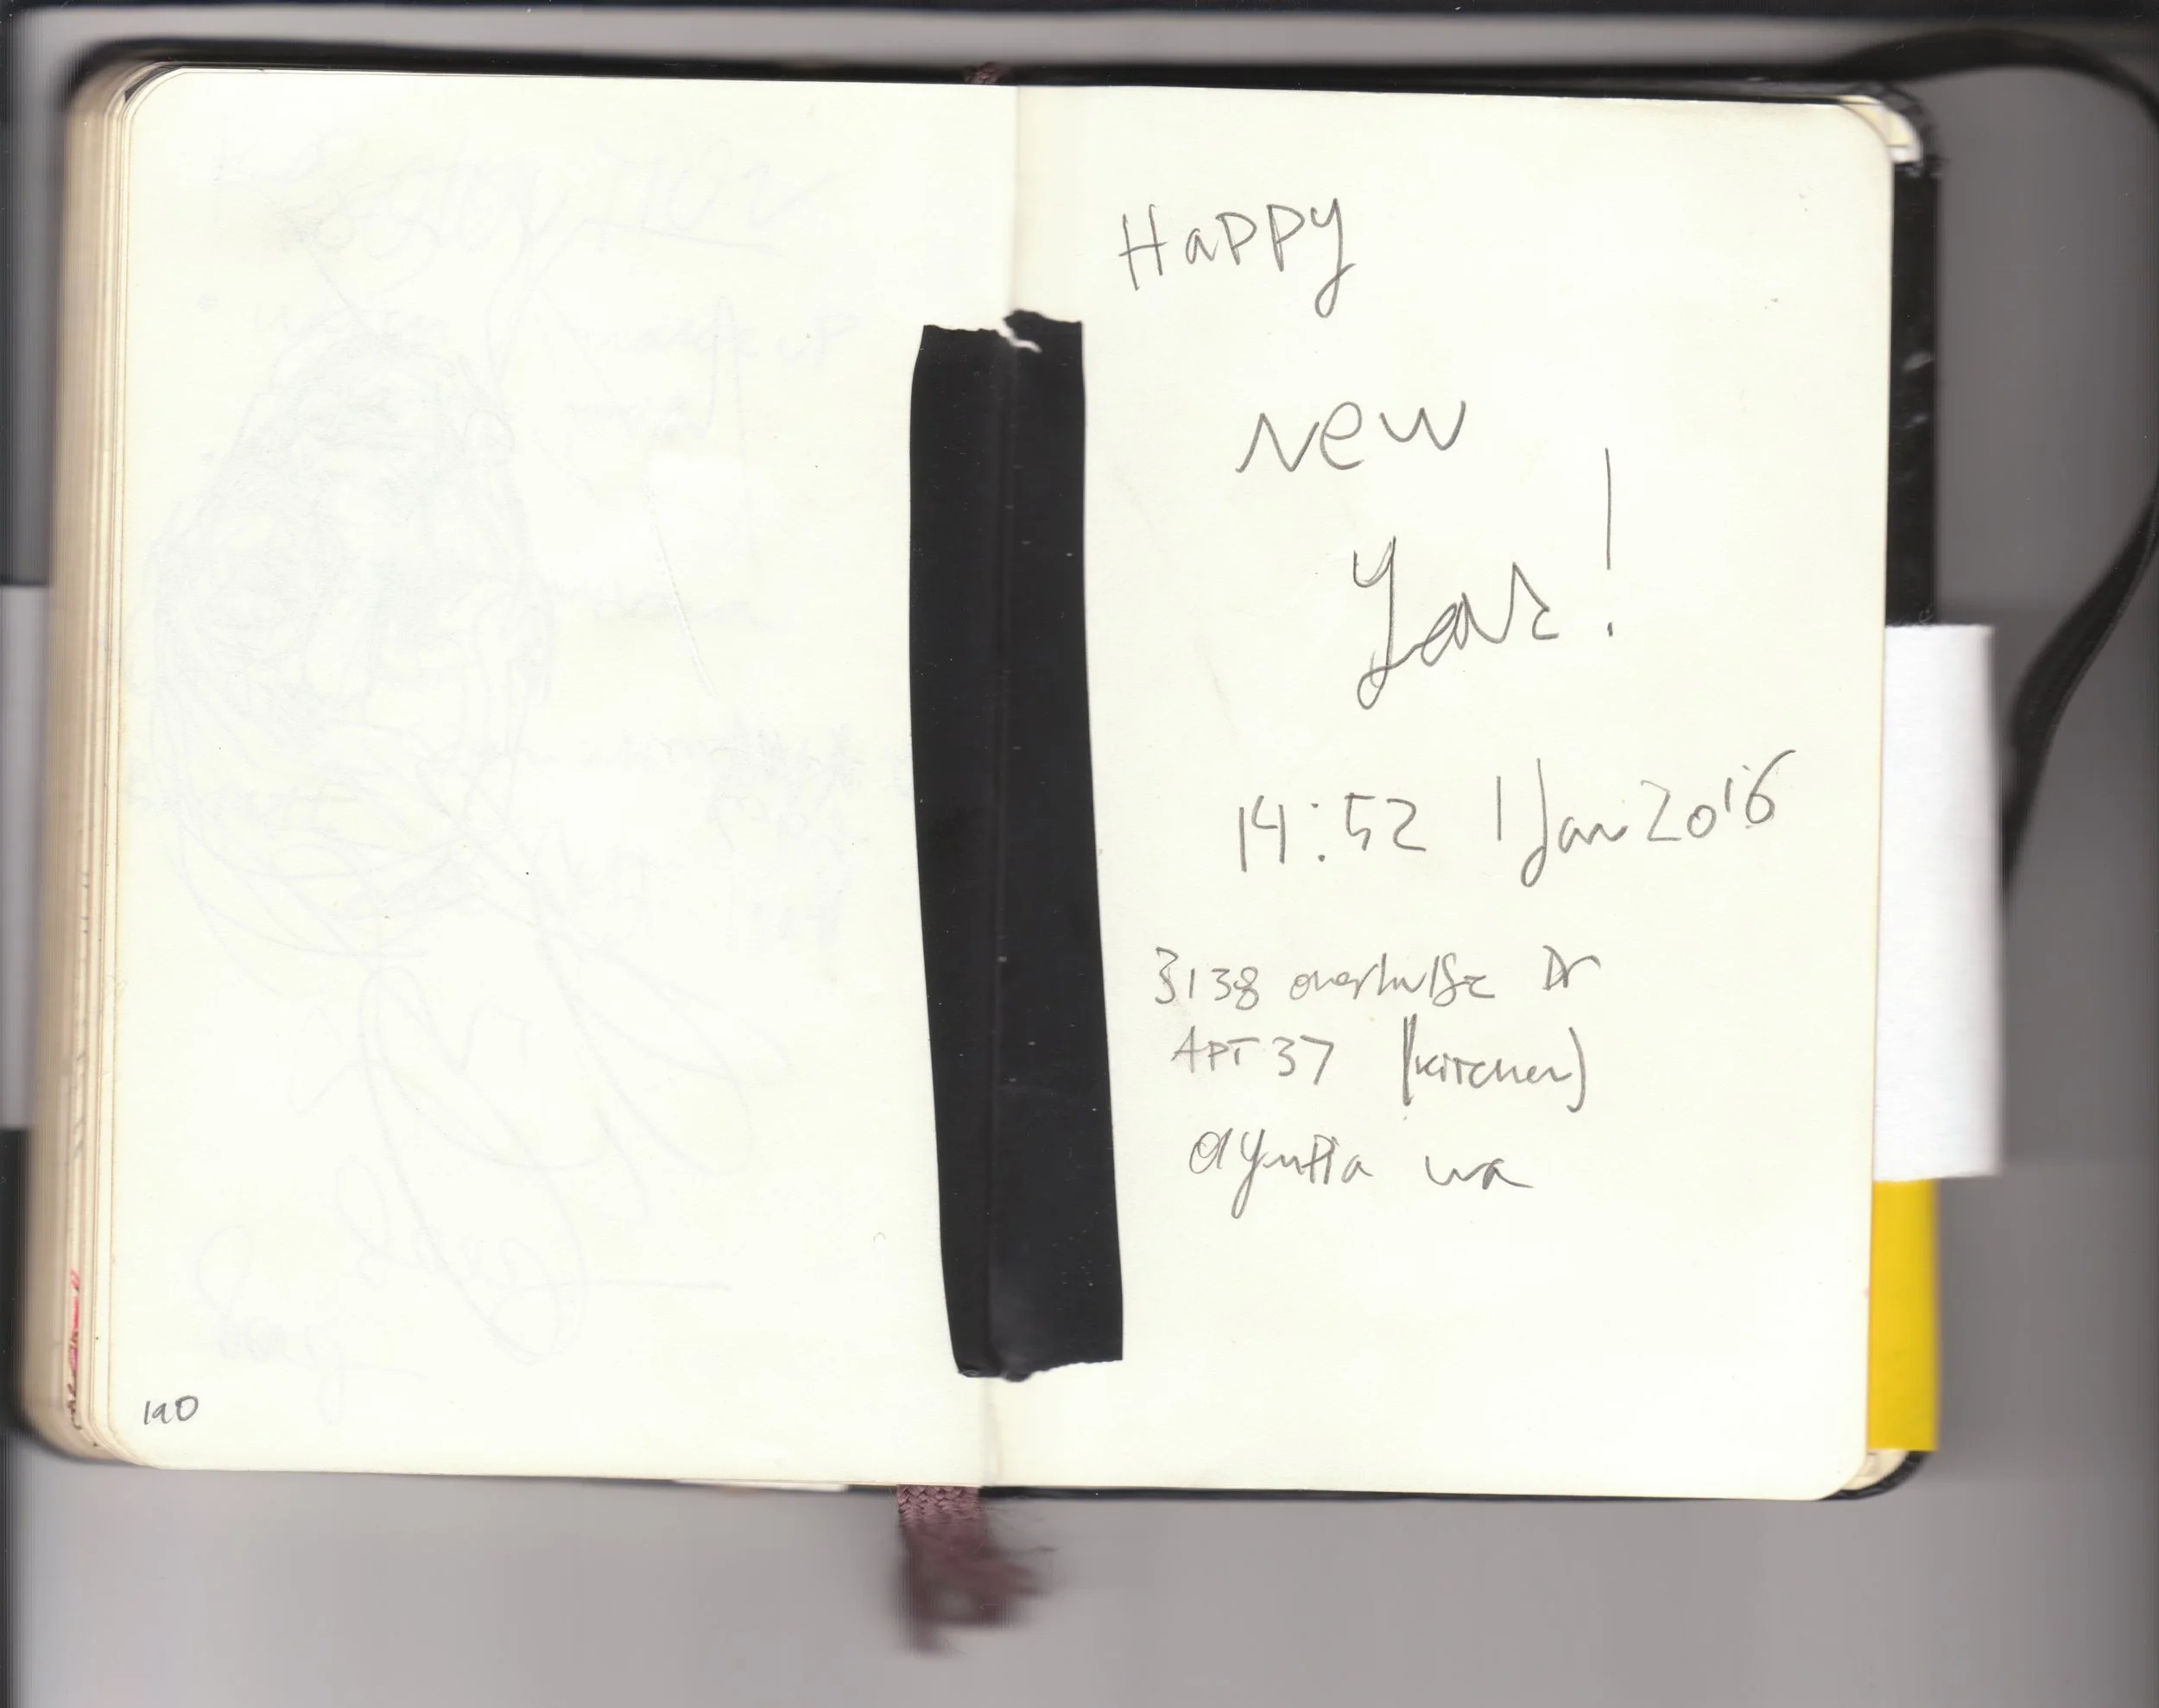 Happy
New
Year!
14:52 1 Jan 2016
3138 overhulse Dr
APT 37 (kitchen)
olympia wa
190